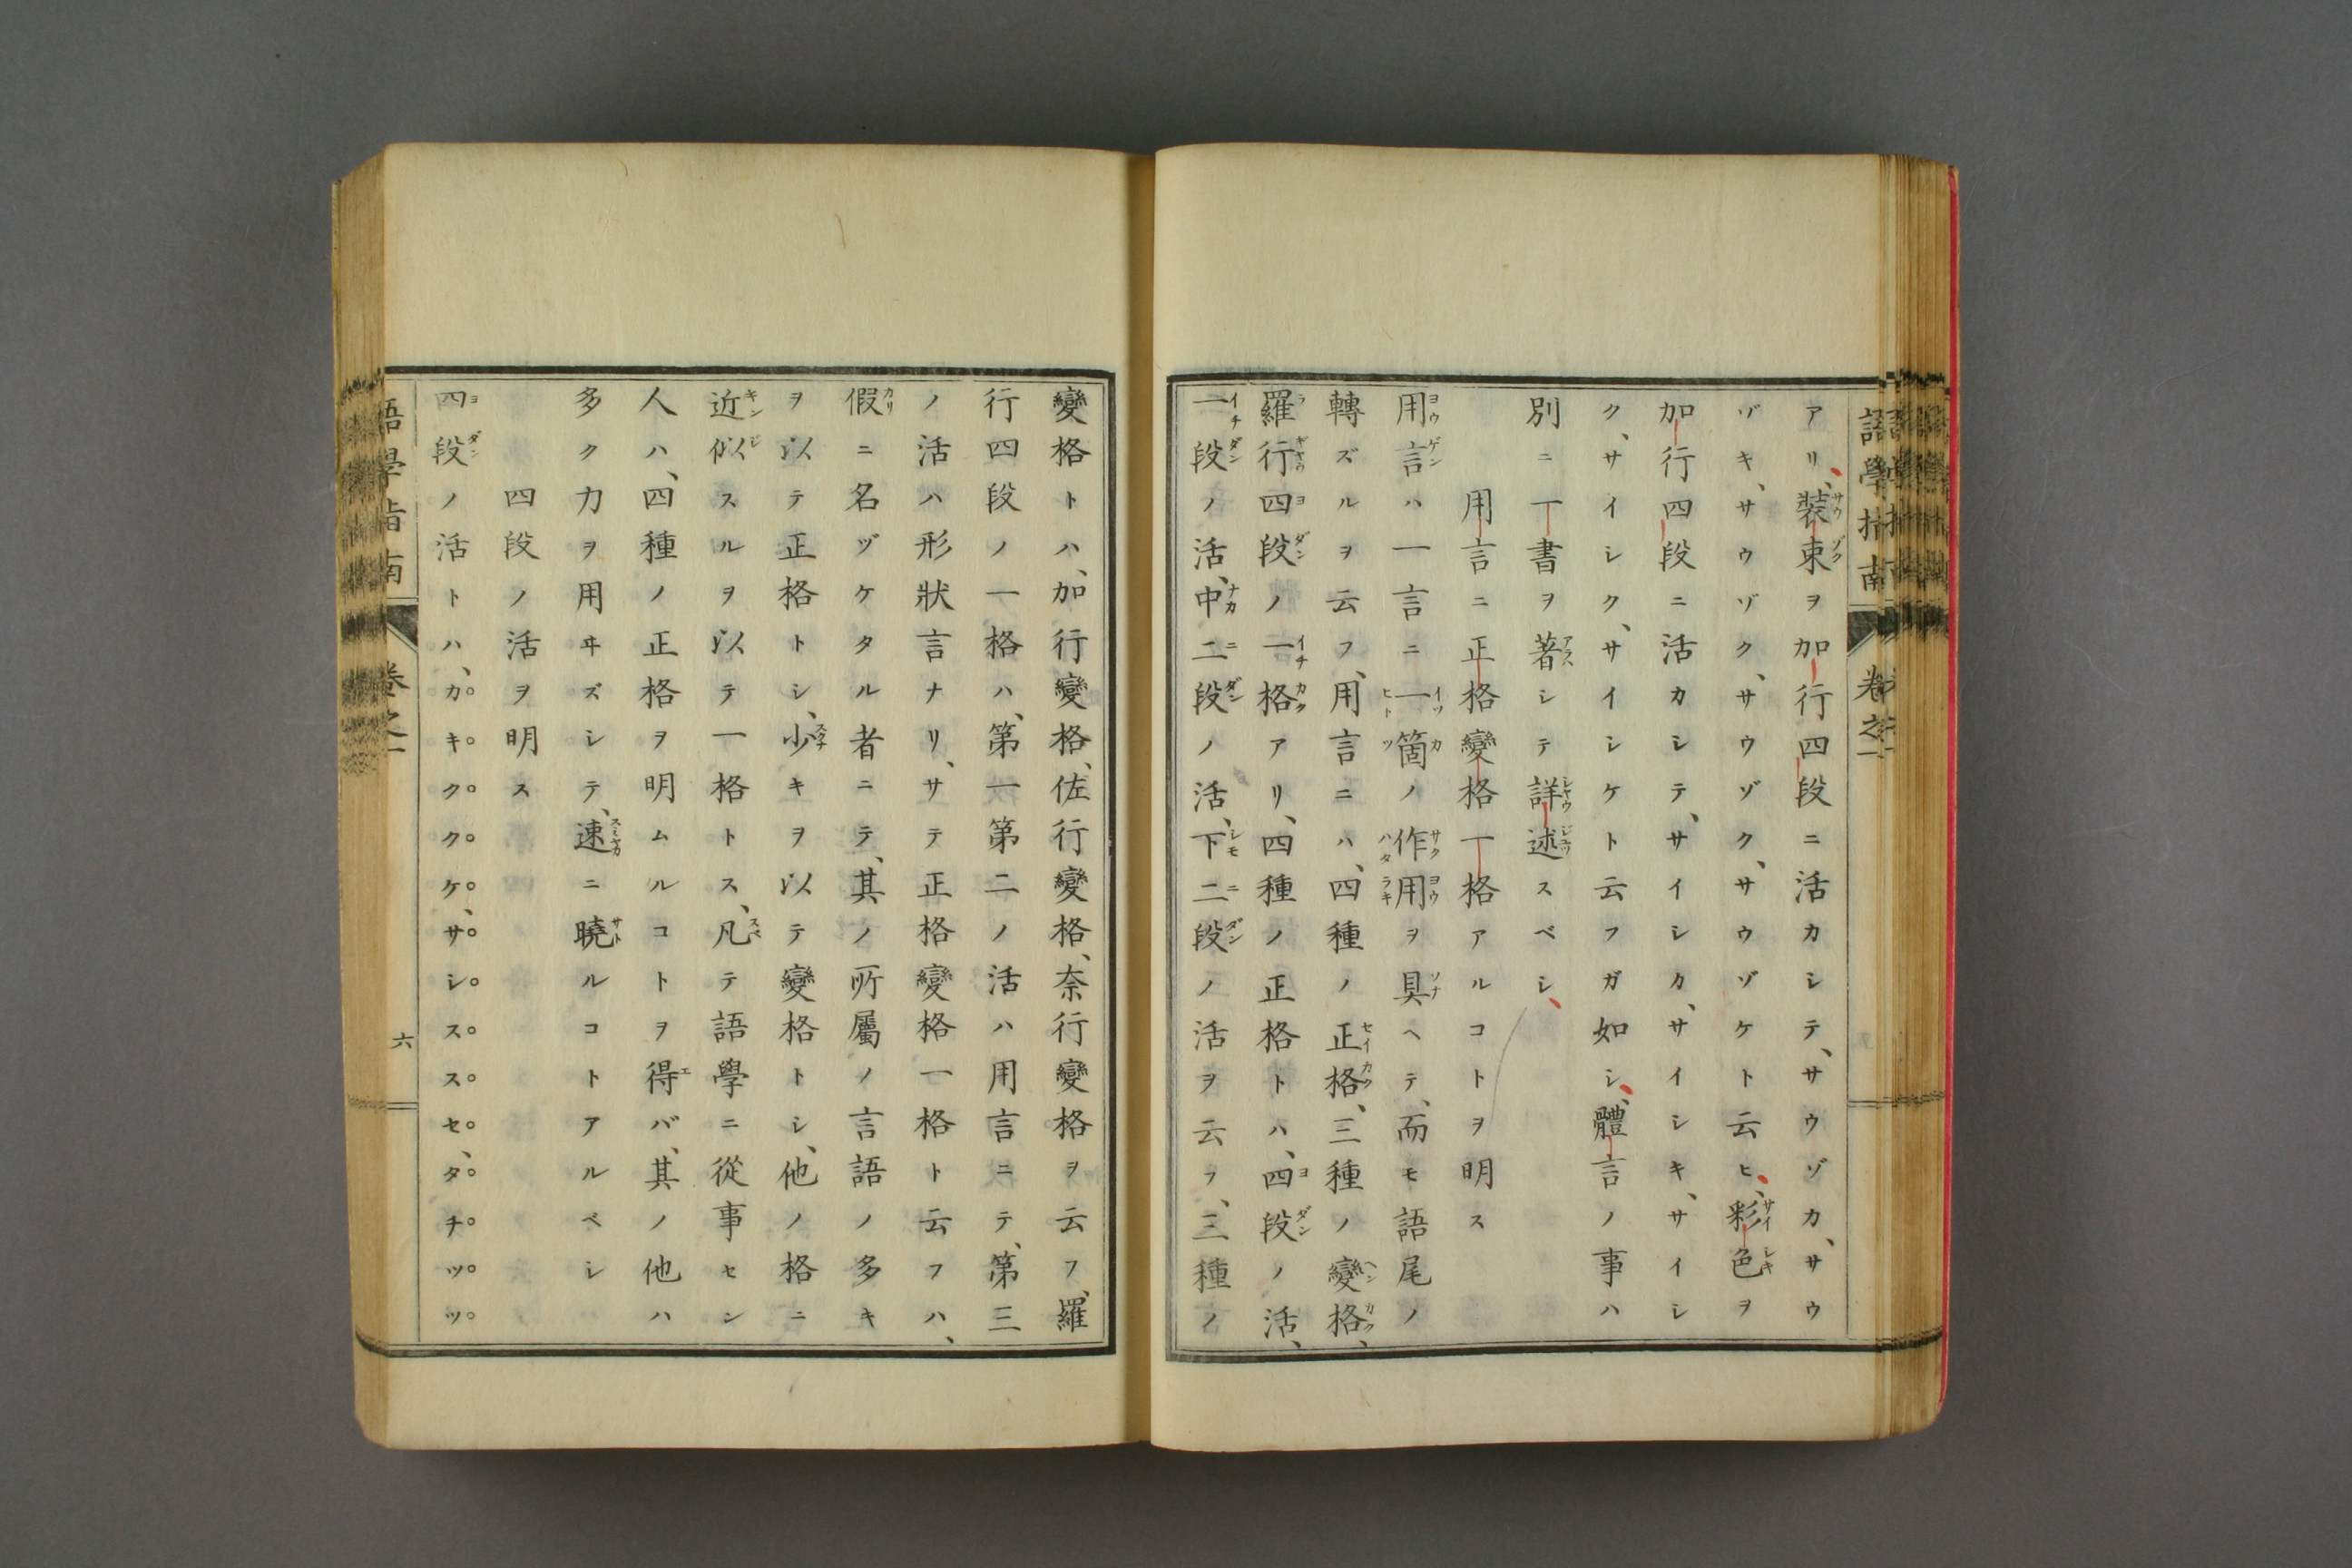 語學指南 卷之一
アリ、裝束ヲ加行四段ニ活カシテ、サウゾカ、サウ
ゾキ、サウゾク、サウゾク、サウゾケト云ヒ、彩色ヲ
加行四段ニ活カシテ、サイシカ、サイシキ、サイシ
ク、サイシク、サイシケト云フガ如シ、體言ノ事ハ
別ニ一書ヲ著シテ詳述スベシ、
用言ニ正格變格一格アルコトヲ明ス
用言ハ一言ニ一箇ノ作用ヲ具ヘテ、而モ語尾ノ
轉ズルヲ云フ、用言ニハ、四種ノ正格、三種ノ變格、
羅行四段ノ一格アリ、四種ノ正格トハ、四段ノ活、
一段ノ活、中二段ノ活、下二段ノ活ヲ云フ、三種ノ
變格トハ、加行變格、佐行變格、奈行變格ヲ云フ、羅
行四段ノ一格ハ、第一第二ノ活ハ用言ニテ、第三
ノ活ハ形狀言ナリ、サテ正格變格一格ト云フハ、
假ニ名ヅケタル者ニテ、其ノ所屬ノ言語ノ多キ
ヲ以テ正格トシ、少キヲ以テ變格トシ、他ノ格ニ
近似スルヲ以テ一格トス、凡テ語學ニ從事セン
人ハ、四種ノ正格ヲ明ムルコトヲ得バ、其ノ他ハ
多ク力ヲ用ヰズシテ、速ニ曉ルコトアルベシ
四段ノ活ヲ明ス
四段ノ活トハ、カキククケ、サシススセ、タチツツ
語學指南 卷之一 六